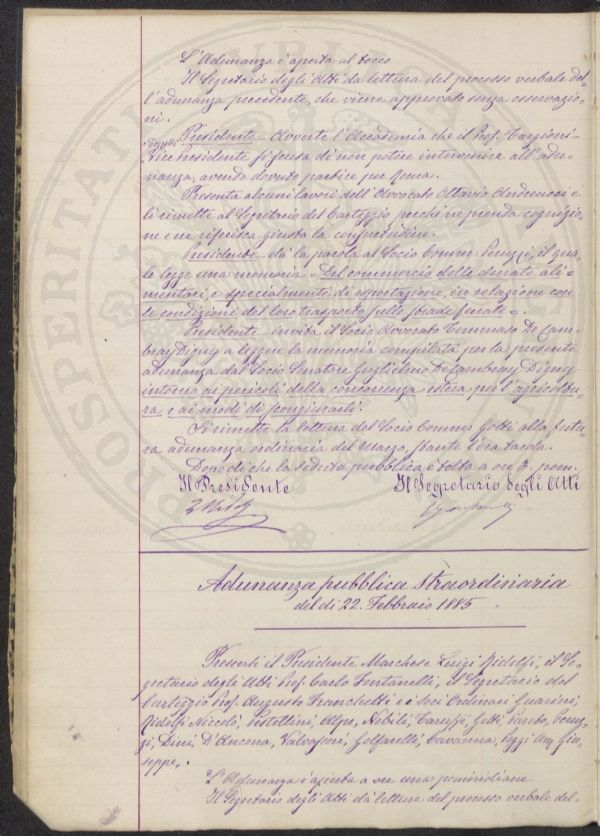 L'Adunanza è aperta al tocco
Il Segretario degli Atti dà lettura del processo verbale del-
l'adunanza precedente, che viene approvato senza osservazio-
ni.
Presidente = Avverte l'Accademia che il Prof. Targioni-
Tozzetti
Vice Presidente si scusa di non potere intervenire all'adu-
nanza, avendo dovuto partire per Roma.
Presenta alcuni lavori dell'Avvocato Ottavio Andreucci e
li rimette al Segretario del Carteggio perchè ne prenda cognizio-
ne e ne riferisca giusta la consuetudine.
Presidente dà la parola al Socio Comm. Peruzzi, il qua-
le legge una memoria "Del commercio delle derrate ali-
mentari, e specialmente di esportazione, in relazione con
le condizioni del loro trasporto sulle strade ferrate".
Presidente invita il Socio Avvocato Tommaso De Cam-
bray Digny a leggere la memoria compilata per la presente
adunanza dal Socio Senatore Guglielmo De Cambray Digny
intorno ai pericoli della concorrenza estera per l'agricoltu-
ra e ai modi di scongiurarli.
Si rimette la lettura del Socio Comm. Gotti alla futu-
ra adunanza ordinaria del Marzo, stante l'ora tarda.
Dopo di che la seduta pubblica è tolta a ore 3. pom.
Il Presidente Il Segretario degli Atti
Adunanza pubblica straordinaria
del dì 22. Febbraio 1885.
Presenti il Presidente Marchese Luigi Ridolfi, il Se-
gretario degli Atti Prof. Carlo Fontanelli, il Segretario del
Carteggio Prof. Augusto Franchetti e i Soci Ordinari Guarini,
Ridolfi Niccolò, Alpe, Nobili, Caruso, Gotti, Peruz-
zi, Dini, D'Ancona, Valvassori, Golfarelli, Cavanna, Poggi Avv. Giu-
seppe.
L'Adunanza è aperta a ore una pomeridiane
Il Segretario degli Atti dà lettura del processo verbale del-